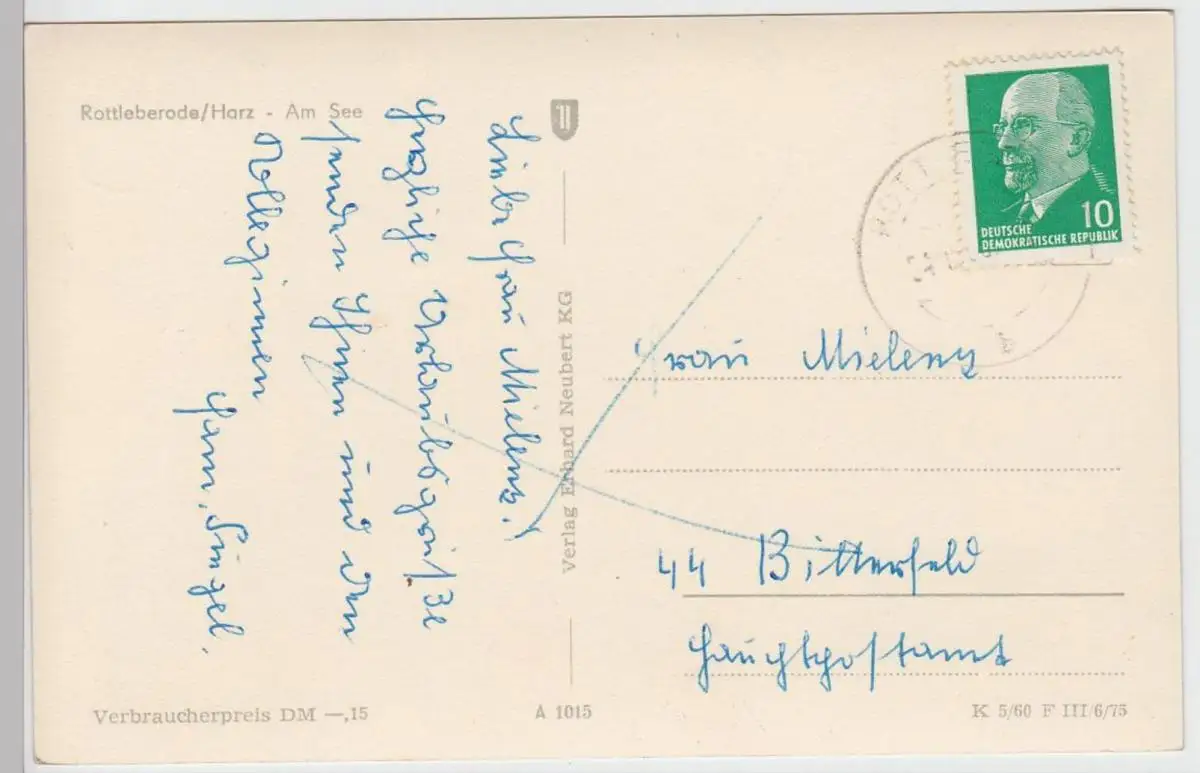 Rottleberode/Harz - Am See
Liebe Frau Mielenz!
Herzliche Urlaubsgrüße
senden Ihnen und den
Kolleginnen
Fam.
Verlag Erhard Neubert KG
10
DEUTSCHE
DEMOKRATISCHE REPUBLIK
Frau Mielenz
44 Bitterfeld
Hauptpostamt
Verbraucherpreis DM —,15
A 1015
K 5/60 F III/6/75